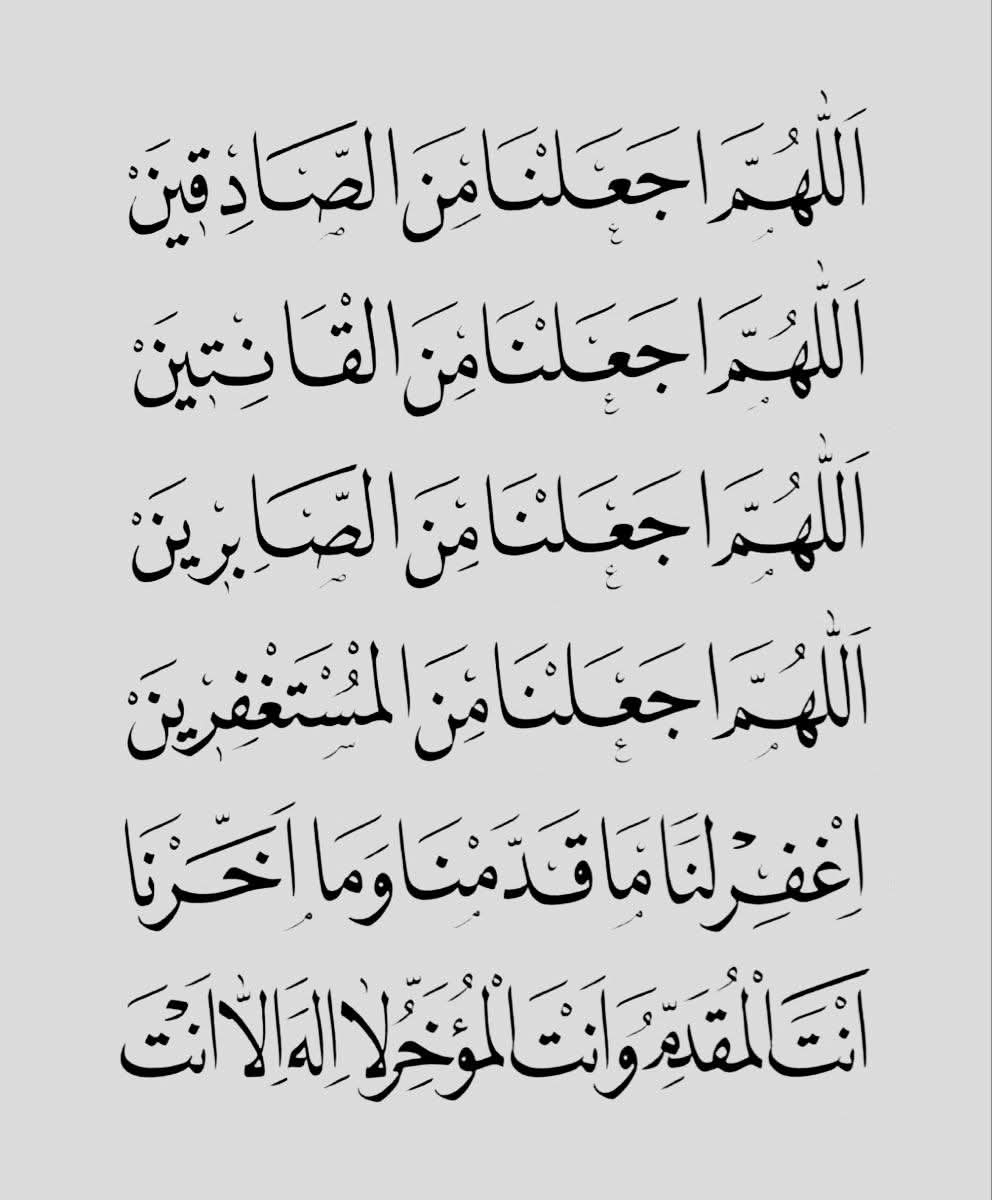 اَللّٰهُمَّ اجَعَلنَا مِنَ الصَّادِقِينَ
اَللّٰهُمَّ اجَعَلنَا مِنَ القَانِتِينَ
اَللّٰهُمَّ اجَعَلنَا مِنَ الصَّابِرِينَ
اَللّٰهُمَّ اجَعَلنَا مِنَ المُسْتَغْفِرِينَ
اِغْفِرْ لَنَا مَا قَدَّمْنَا وَمَا اَخَّرْنَا
اَنْتَ الْمُقَدِّمُ وَاَنْتَ الْمُؤَخِّرُ لَا اِلٰهَ اِلَّا اَنْتَ